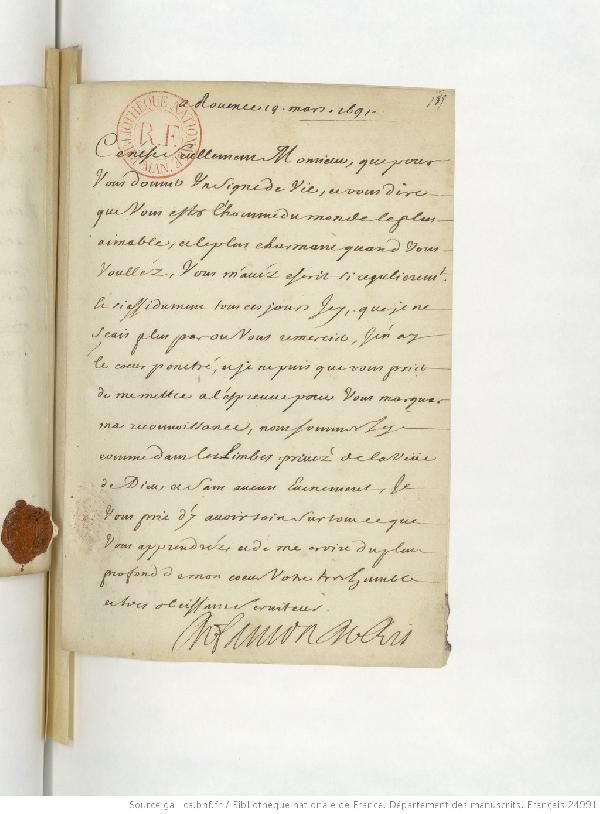 a Rouen ce 19. mars. 1691.
155
BIBLIOTHEQUE NATIONALE
R.F.
MAN.
Ce n'est seullement Monsieur, que pour
Vous donner Un Signe de Vie, et vous dire
que Vous estes l'homme du monde le plus
aimable, et le plus charmant quand Vous
Voullez, Vous m'avéz escrit si regulierem.t
et si assidument tous ces jours Icy, que je ne
sçais plus par ou Vous remercier, J'en ay
le coeur penetré, et je ne puis que vous prier
de me mettre a l'espreuve pour Vous marquer
ma reconnoissance, nous sommes Icy
comme dans les Limbes privéz de la Veüe
de Dieu, et Sans aucun Evenement, Je
Vous prie d'y avoir soin Sur tout ce que
Vous apprendrés, et de me croire du plus
profond de mon coeur Votre tres humble
et tres obeissant Serviteur.
Source gallica.bnf.fr / Bibliothèque nationale de France. Département des manuscrits. Français 24991